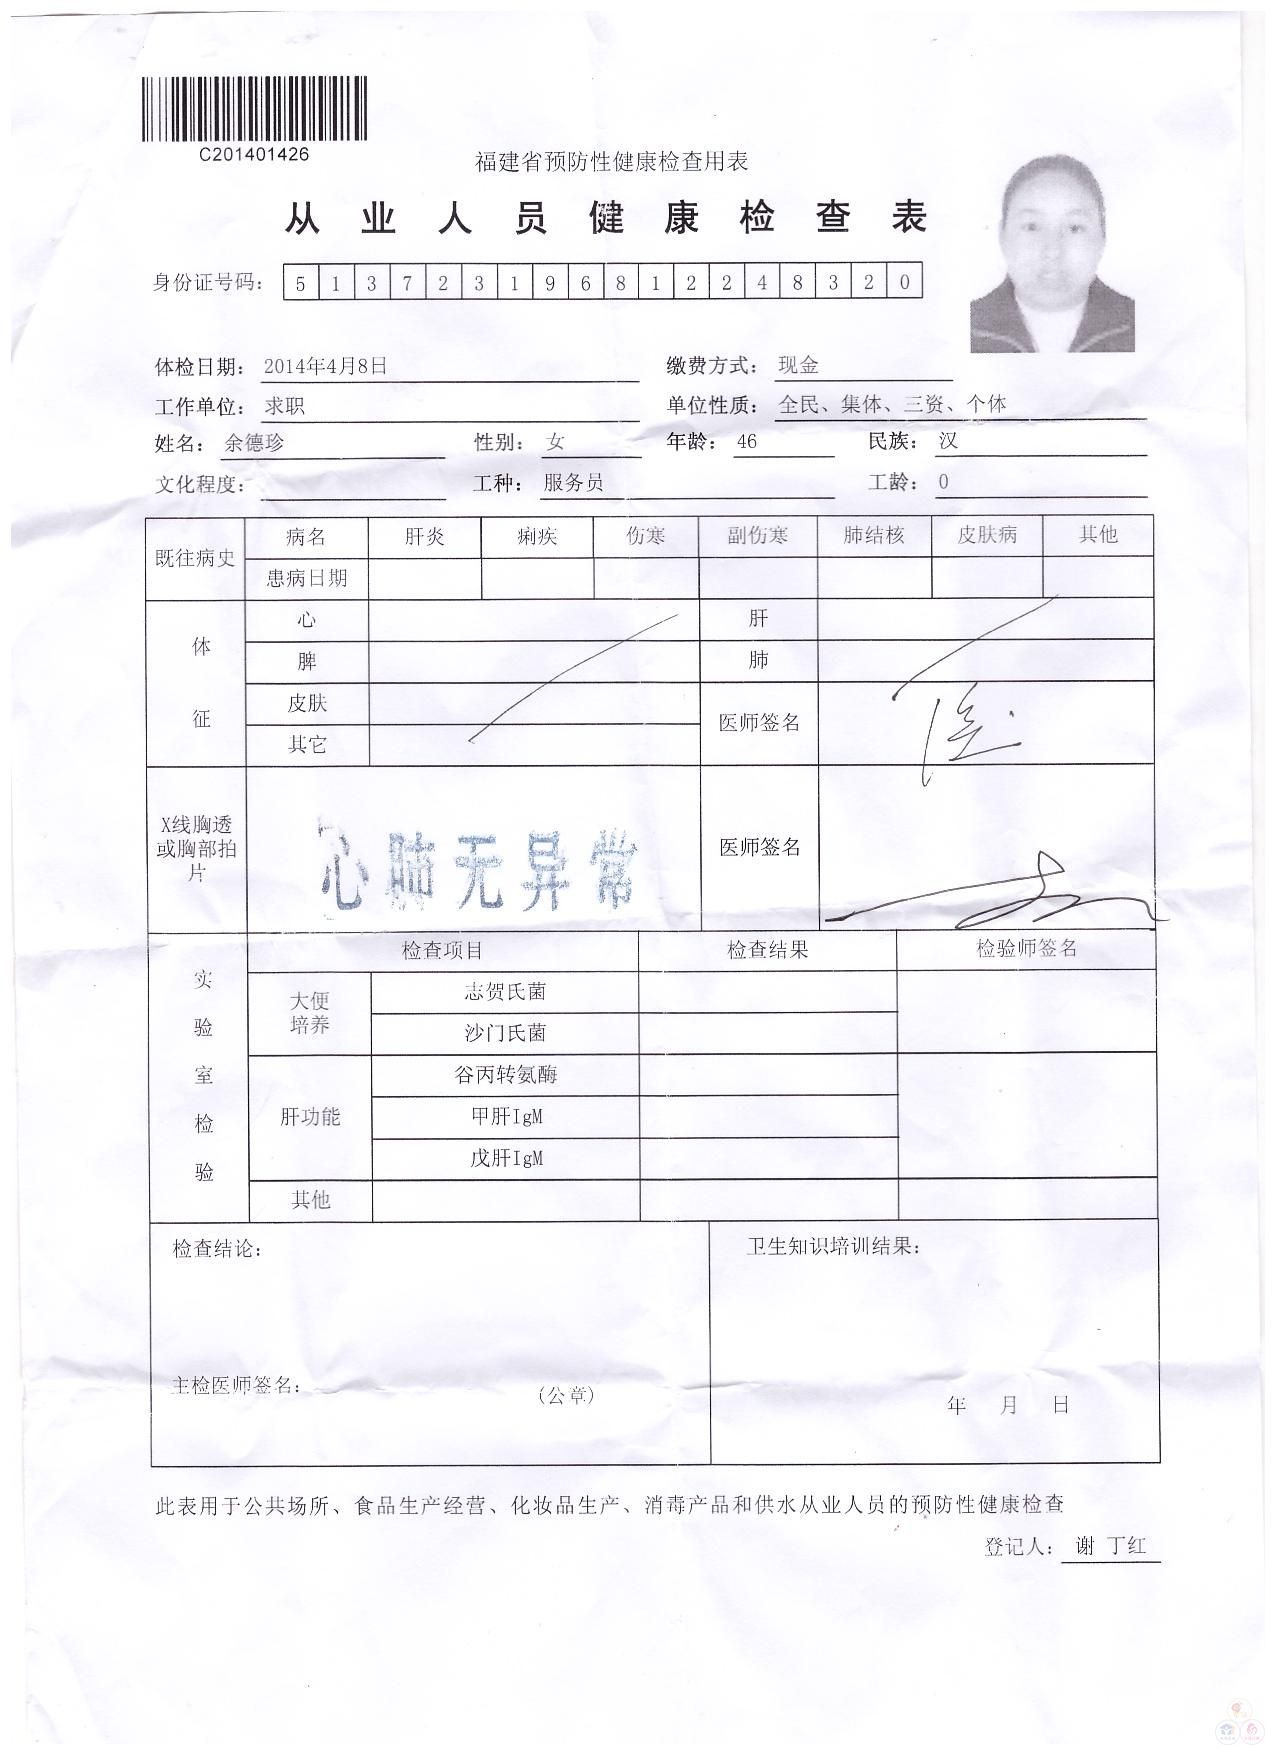 C201401426
福建省预防性健康检查用表
从业人员健康检查表
身份证号码: 513723196812248320
体检日期: 2014年4月8日 缴费方式: 现金
工作单位: 求职 单位性质: 全民、集体、三资、个体
姓名: 余德珍 性别: 女 年龄: 46 民族: 汉
文化程度: 工种: 服务员 工龄: 0
既往病史 病名 肝炎 痢疾 伤寒 副伤寒 肺结核 皮肤病 其他
患病日期
体征 心 肝
脾 肺
皮肤 医师签名
其它
X线胸透或胸部拍片 心肺无异常 医师签名
实验室检验 检查项目 检查结果 检验师签名
大便培养 志贺氏菌
沙门氏菌
肝功能 谷丙转氨酶
甲肝IgM
戊肝IgM
其他
检查结论: 卫生知识培训结果:
主检医师签名: (公章) 年 月 日
此表用于公共场所、食品生产经营、化妆品生产、消毒产品和供水从业人员的预防性健康检查
登记人: 谢 丁红